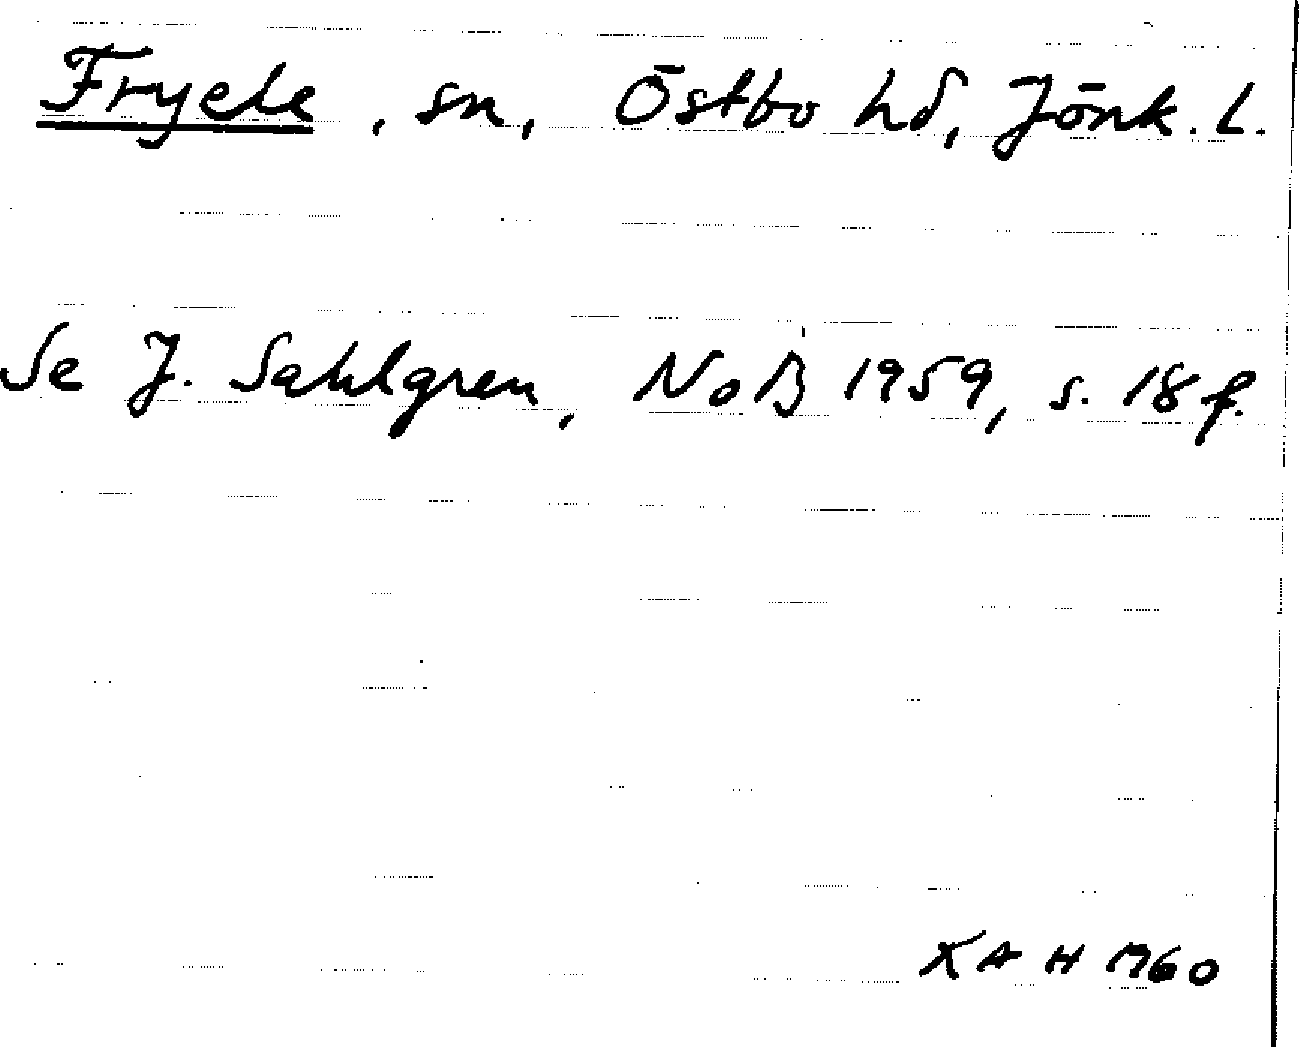 Fryele, sn, Östbo hd, Jönk. l.
Se J. Sahlgren, NoB 1959, s. 18 f.
KAH 1960